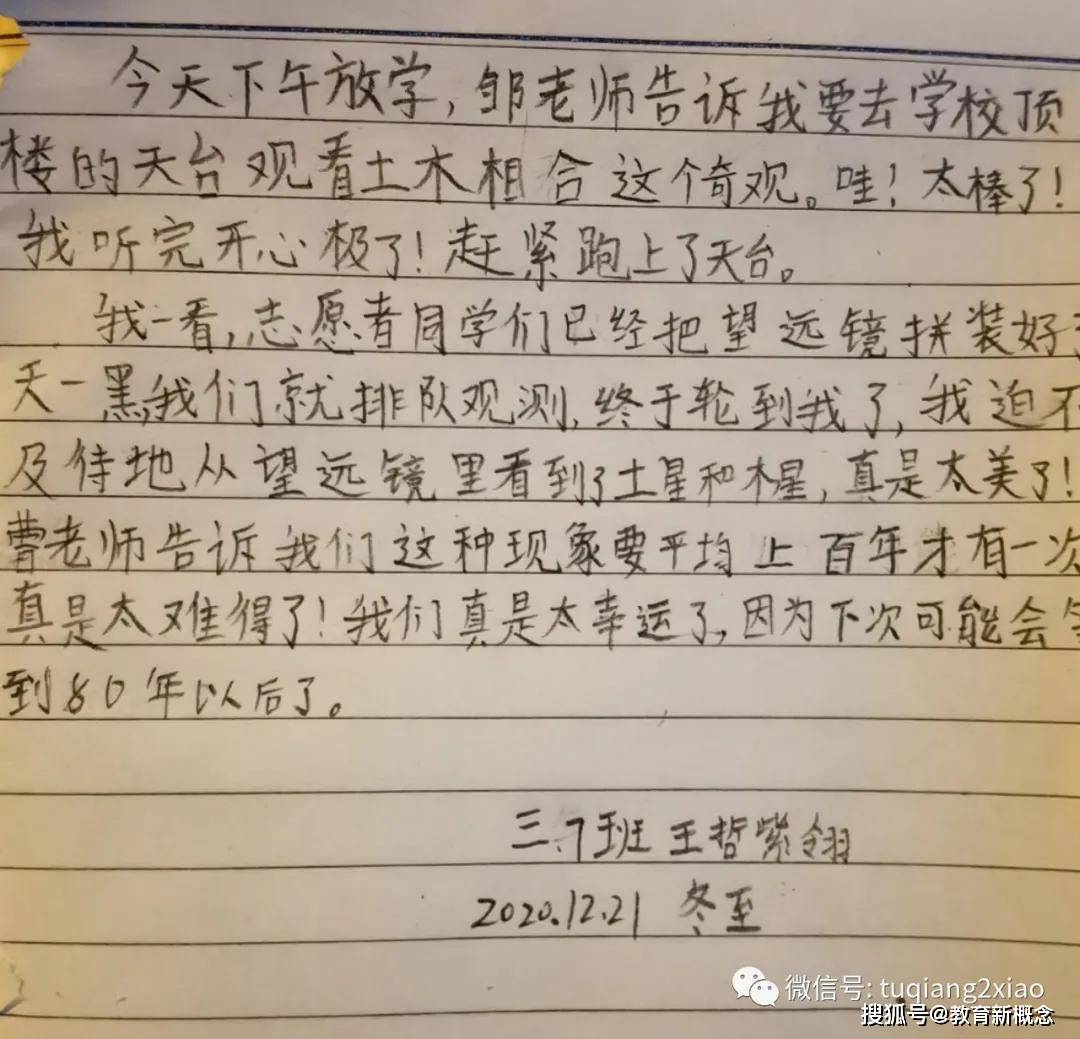 今天下午放学,邹老师告诉我要去学校顶
楼的天台观看土木相合这个奇观。哇!太棒了!
我听完开心极了!赶紧跑上了天台。
我一看,志愿者同学们已经把望远镜拼装好了
天一黑,我们就排队观测,终于轮到我了,我迫不
及待地从望远镜里看到了土星和木星,真是太美了!
曹老师告诉我们这种现象要平均上百年才有一次
真是太难得了!我们真是太幸运了,因为下次可能会等
到80年以后了。
三.7班 王哲紫翎
2020.12.21 冬至
微信号: tuqiang2xiao
搜狐号@教育新概念